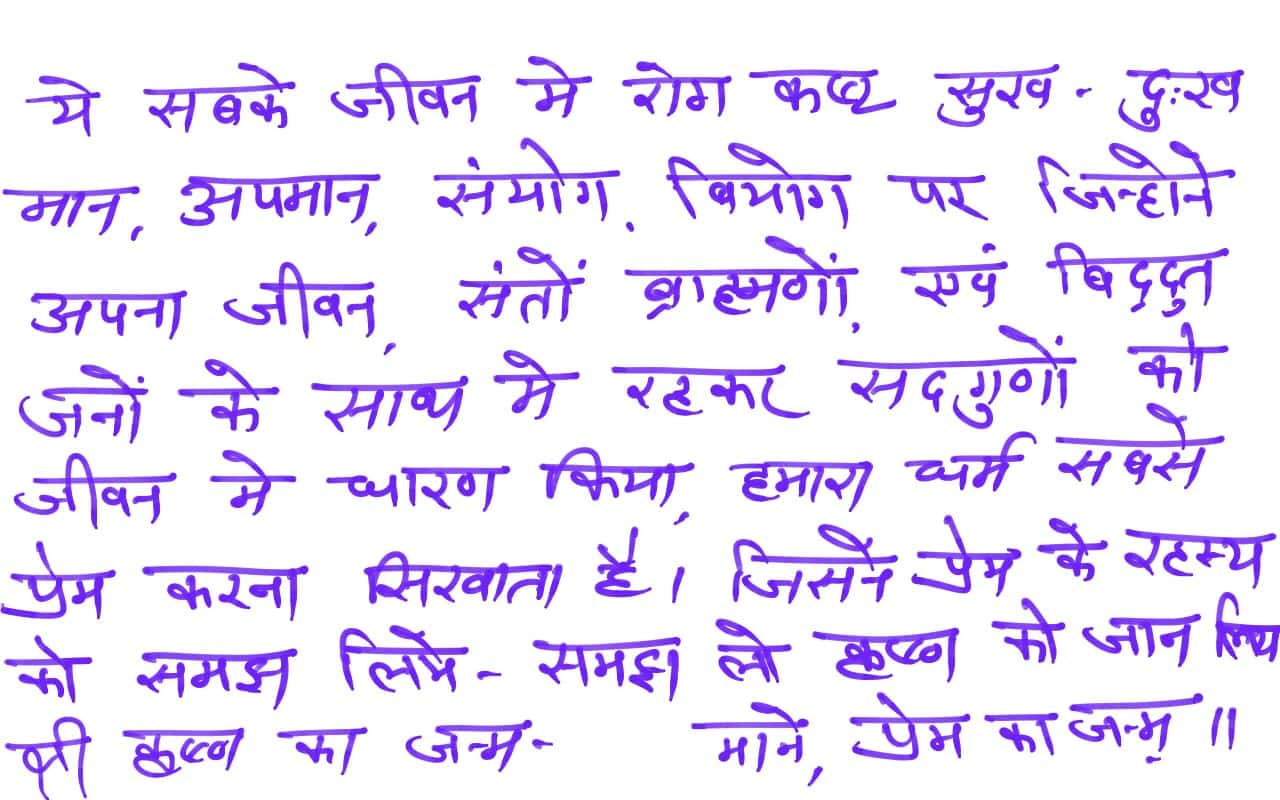 ये सबके जीवन मे रोग कष्ट सुख - दुःख
मान, अपमान, संयोग, वियोग पर जिन्होने
अपना जीवन, संतों ब्राह्मणों, एवं विद्द्त
जनों के साथ मे रहकर सदगुणों को
जीवन मे धारण किया, हमारा धर्म सबसे
प्रेम करना सिखाता है। जिसने प्रेम के रहस्य
को समझ लिये - समझ लो कृष्ण को जान लिय
श्री कृष्ण का जन्म - माने, प्रेम का जन्म ॥